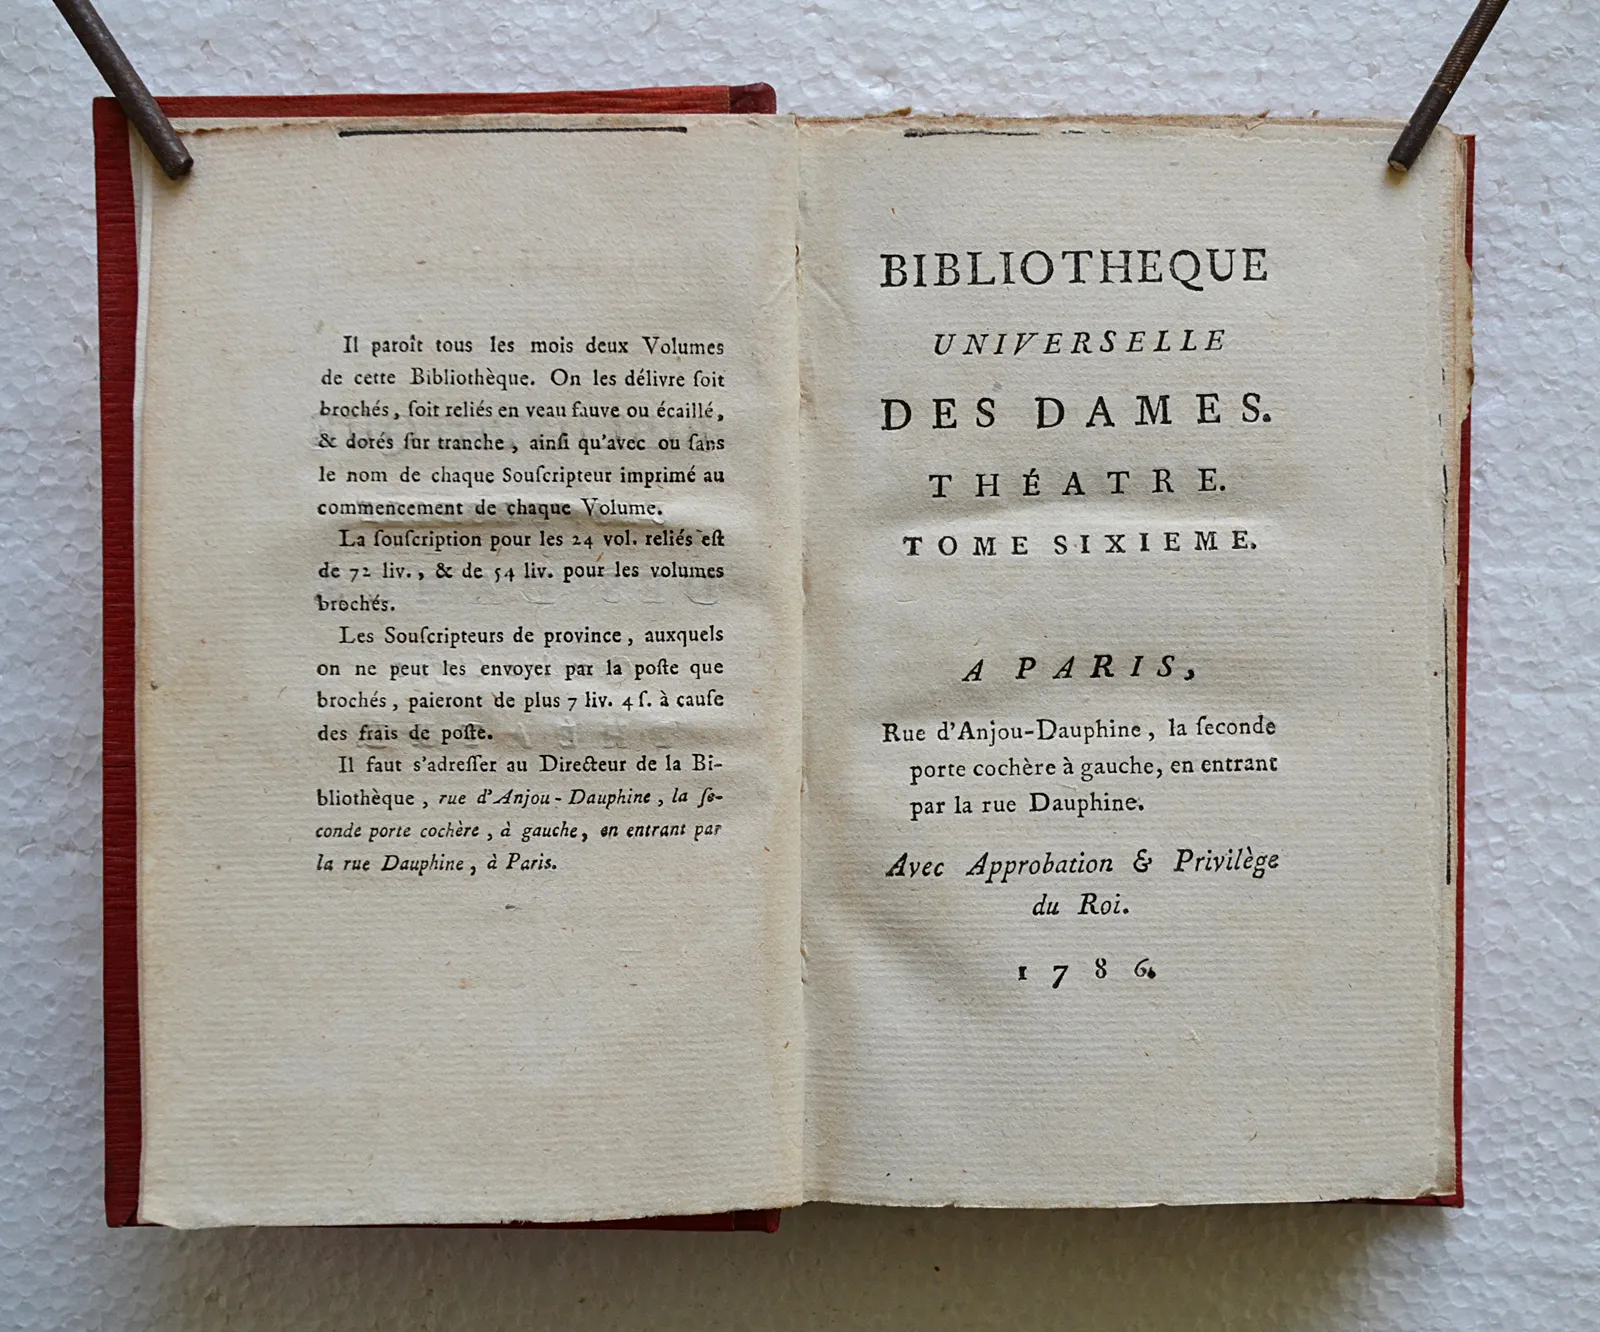 Il paroît tous les mois deux Volumes
de cette Bibliothèque. On les délivre ſoit
brochés, ſoit reliés en veau fauve ou écaillé,
& dorés ſur tranche, ainſi qu'avec ou ſans
le nom de chaque Souſcripteur imprimé au
commencement de chaque Volume.
La ſouſcription pour les 24 vol. reliés eſt
de 72 liv., & de 54 liv. pour les volumes
brochés.
Les Souſcripteurs de province, auxquels
on ne peut les envoyer par la poſte que
brochés, paieront de plus 7 liv. 4 ſ. à cauſe
des frais de poſte.
Il faut s'adreſſer au Directeur de la Bi-
bliothèque, rue d'Anjou-Dauphine, la ſe-
conde porte cochère, à gauche, en entrant par
la rue Dauphine, à Paris.
BIBLIOTHEQUE
UNIVERSELLE
DES DAMES.
THÉATRE.
TOME SIXIEME.
A PARIS,
Rue d'Anjou-Dauphine, la ſeconde
porte cochère à gauche, en entrant
par la rue Dauphine.
Avec Approbation & Privilège
du Roi.
1786.